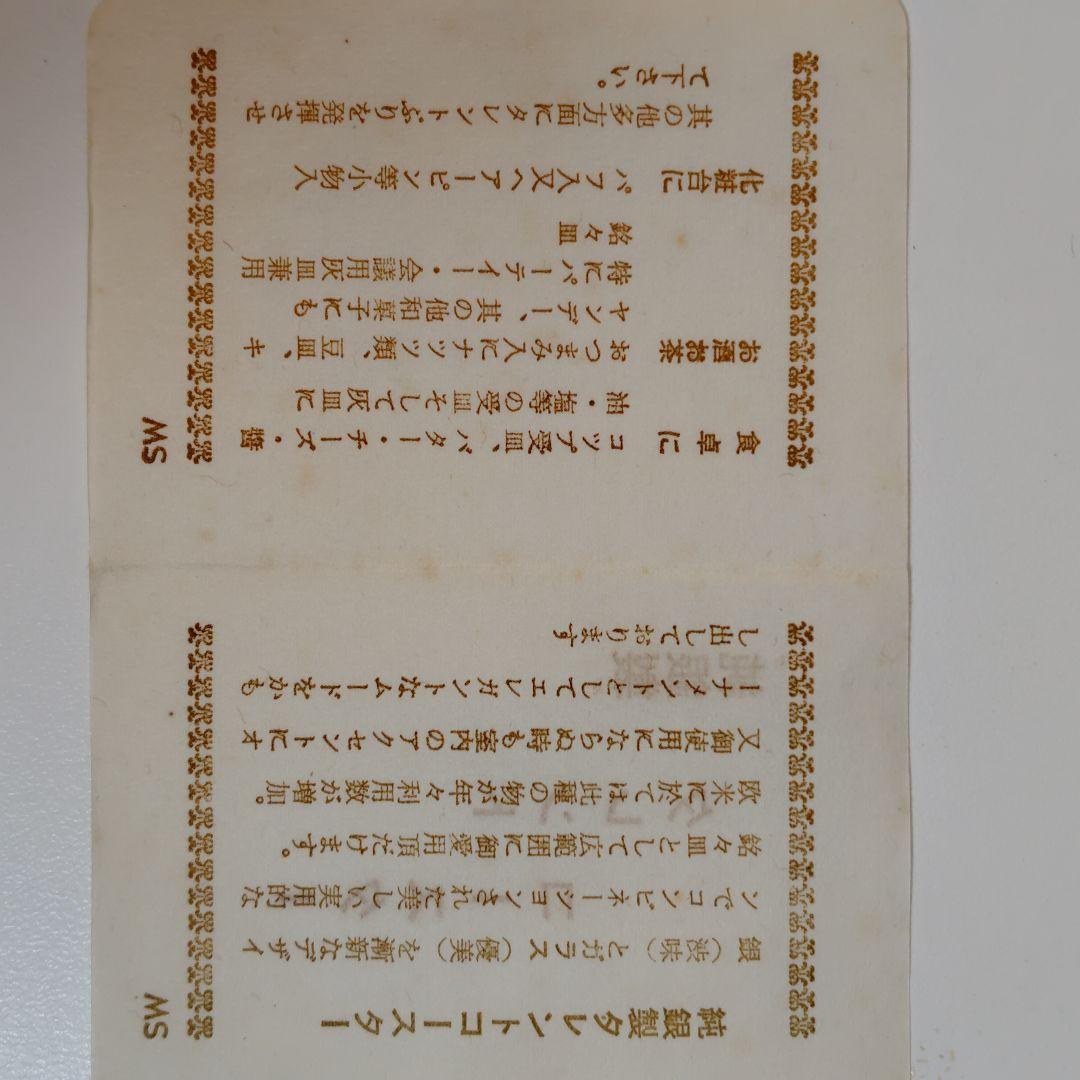 純銀製タレントコースター
銀（渋味）とガラス（優美）を漸新なデザイ
ンでコンビネーションされた美しい実用的な
銘々皿として広範囲に御愛用頂だけます。
欧米に於ては此種の物が年々利用数が増加。
又御使用にならぬ時も室内のアクセントにオ
ーナメントとしてエレガントなムードをかも
し出しております
SW
食卓に コップ受皿、バター・チーズ・醬
油・塩等の受皿そして灰皿に
お酒お茶 おつまみ入にナッツ類、豆皿、キ
ャンデー、其の他和菓子にも
特にパーティー・会議用灰皿兼用
銘々皿
化粧台に パフ入又ヘアーピン等小物入
其の他多方面にタレントぶりを発揮させ
て下さい。
SW